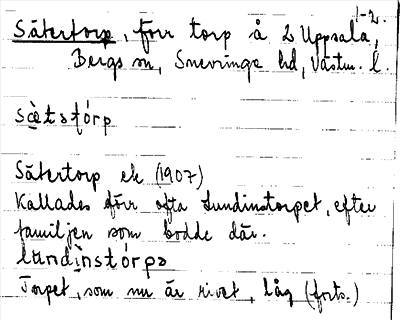 1-2.
Sätertorp, förr torp å L Uppsala,
Bergs sn, Snevringe hd, Västm. l.
sä̀tstórp
Sätertorp ek (1907)
Kallades förr ofta Lundinstorpet, efter
familjen som bodde där.
lundìnstórpə
Torpet, som nu är rivet, låg (forts.)